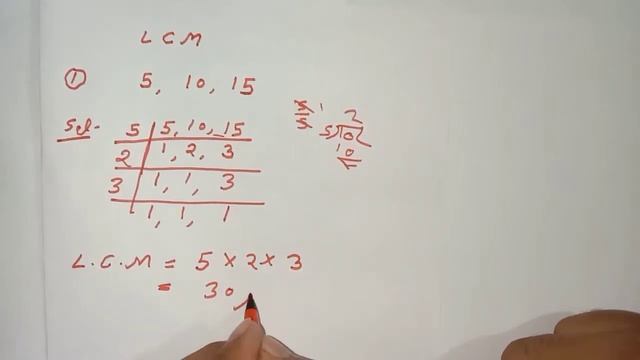 LCM
① 5, 10, 15
Sol.
5 | 5, 10, 15
2 | 1, 2, 3
3 | 1, 1, 3
1, 1, 1
5 1
5
2
5)10(
10
L.C.M = 5 × 2 × 3
= 30